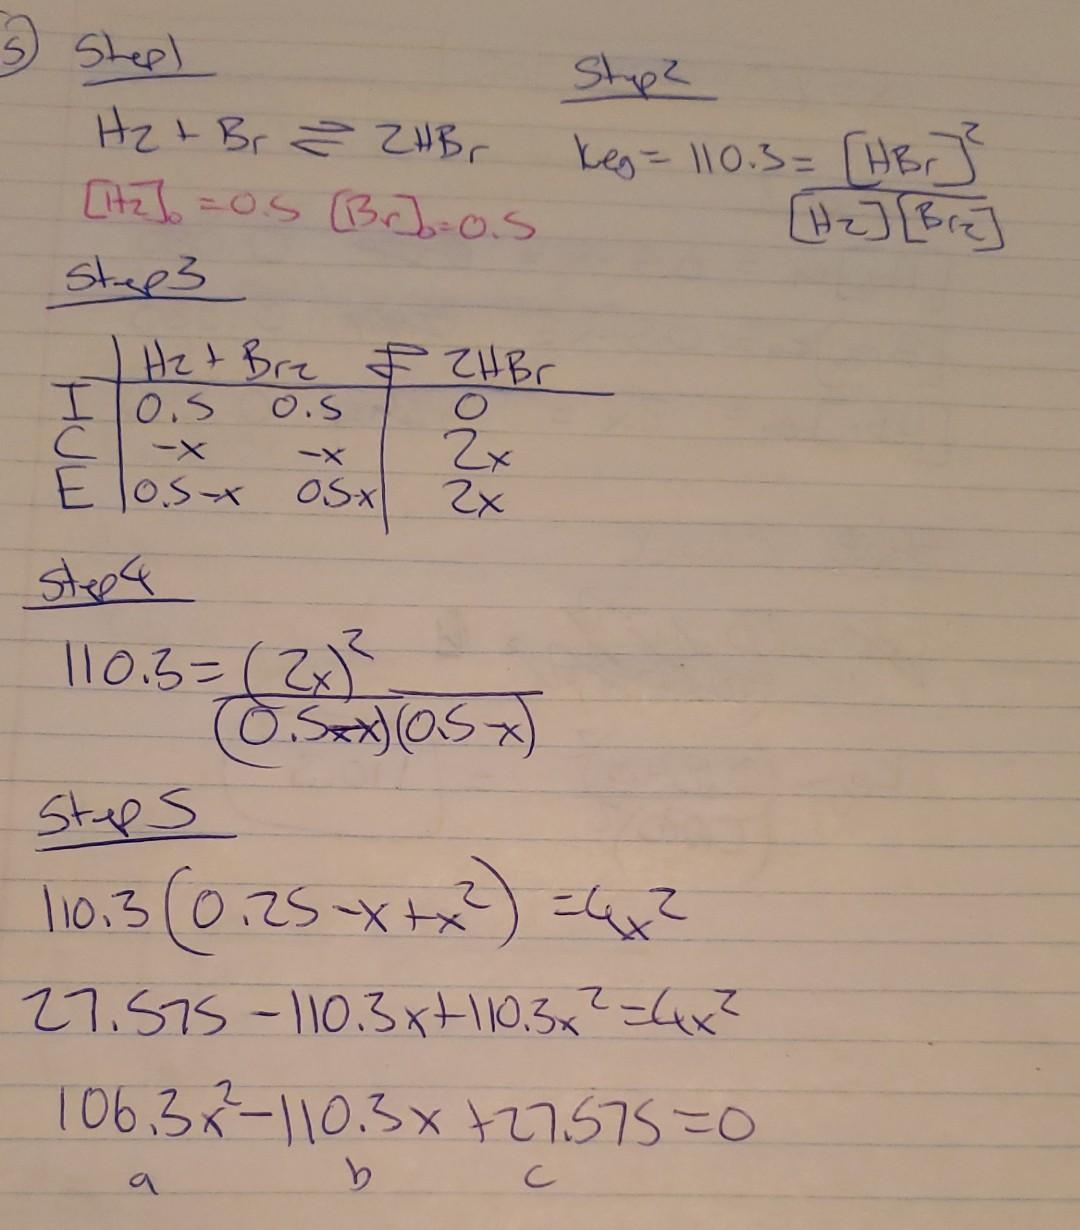 5) Step1
H2 + Br ⇌ 2HBr
[H2]₀ = 0.5 [Br]₀ = 0.5
Step2
Keq = 110.3 = [HBr]²
[H2][Br2]
Step3
H2 + Br2 ⇌ 2HBr
I 0.5 0.5 0
C -x -x 2x
E 0.5-x 0.5-x 2x
Step4
110.3 = (2x)²
(0.5-x)(0.5-x)
Step5
110.3(0.25-x+x²) = 4x²
27.575 - 110.3x + 110.3x² = 4x²
106.3x² - 110.3x + 27.575 = 0
a b c